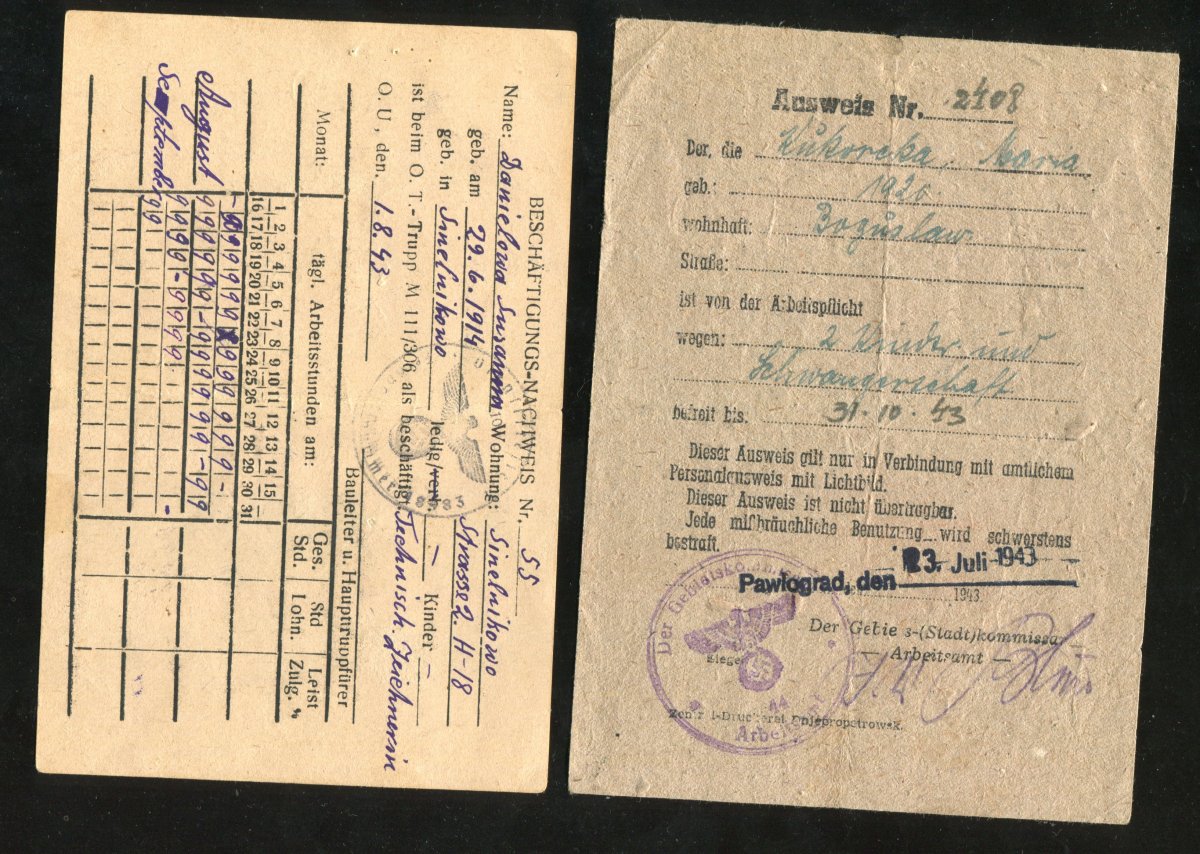 BESCHÄFTIGUNGS-NACHWEIS Nr. 55
Name: Danielowa Susanna Wohnung: Sinelnikowo
geb. am 29.6.1914 Strasse 2. H-18
geb. in Sinelnikowo ledig/verh. — Kinder —
ist beim O. T.-Trupp M 111/306 als beschäftigt. Technisch. Zeichnerin
O. U., den 1.8.43
Bauleiter u. Haupttruppfürer
Monat: tägl. Arbeitsstunden am: Ges. Std. Std Lohn. Leist Zulg. %
1 2 3 4 5 6 7 8 9 10 11 12 13 14 15
16 17 18 19 20 21 22 23 24 25 26 27 28 29 30 31
August
September
Ausweis Nr. 2408
Der, die Kukorcka Maria
geb.: 1920
wohnhaft: Boguslaw
Straße:
ist von der Arbeitspflicht
wegen: 2 Kinder und
Schwangerschaft
befreit bis: 31.10.43
Dieser Ausweis gilt nur in Verbindung mit amtlichem
Personalausweis mit Lichtbild.
Dieser Ausweis ist nicht übertragbar.
Jede mißbräuchliche Benutzung wird schwerstens
bestraft.
Pawlograd, den 23. Juli 1943
1943
Der Gebie s-(Stadt)kommissa
— Arbeitsamt —
Siegel
Der Gebietskomm
Arbei
Zentr l-Druckerei Dnjepropetrowsk.